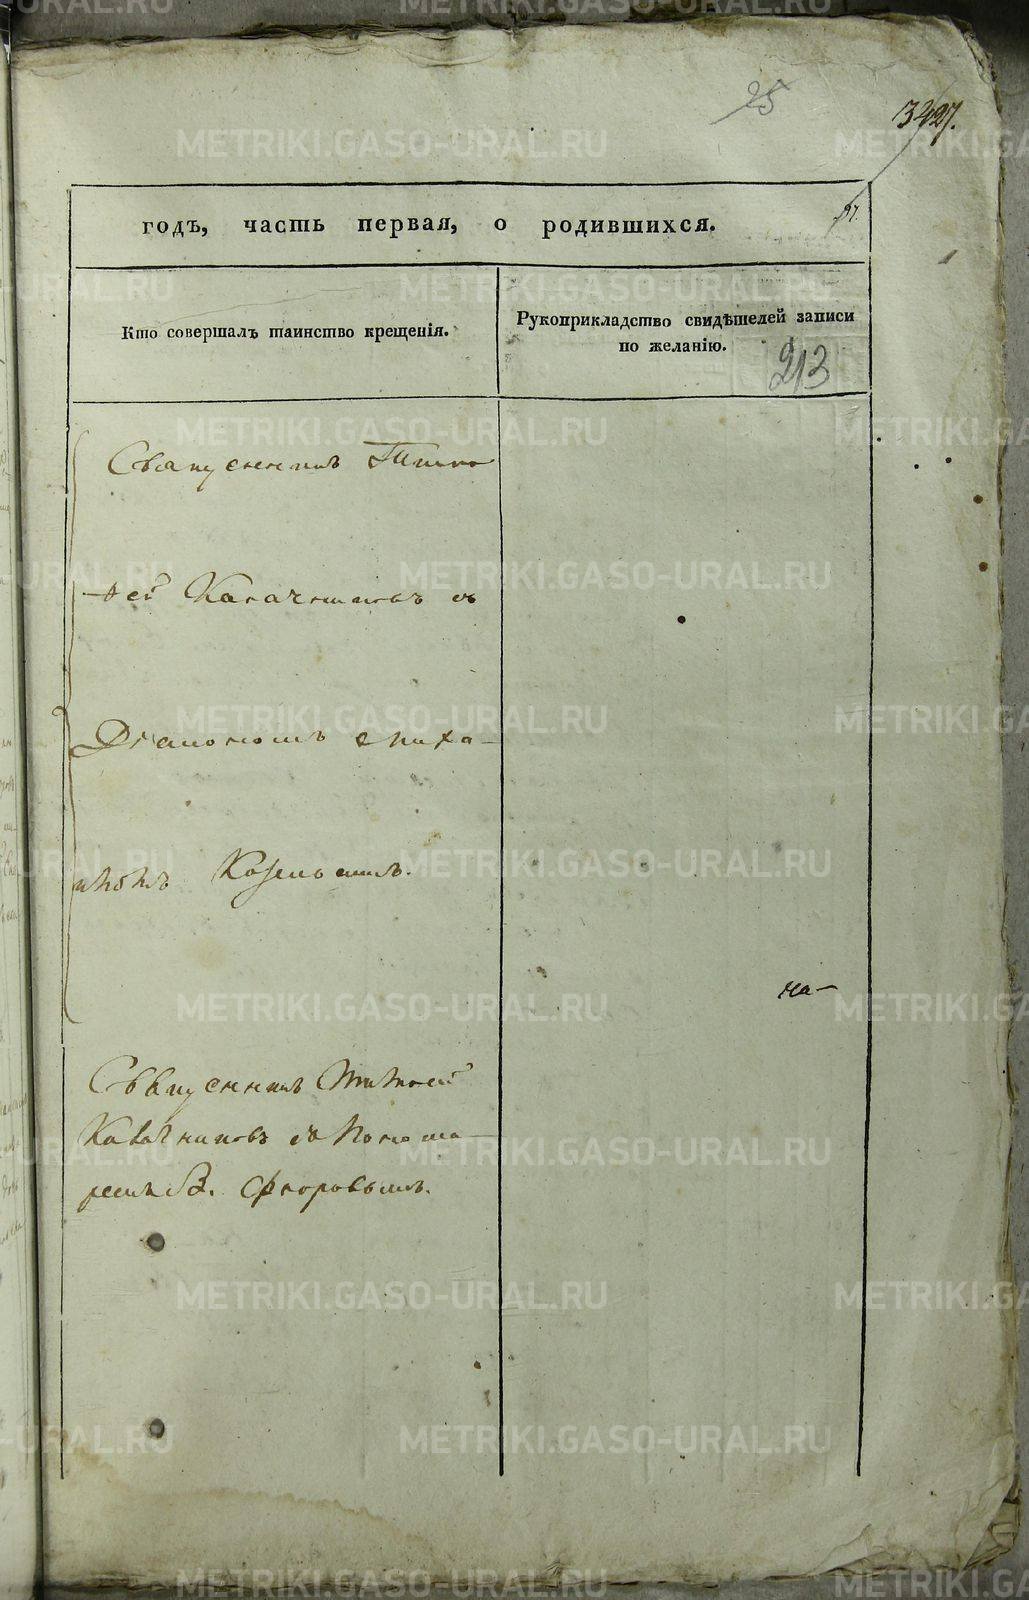 25
годъ, часть первая, о родившихся.
Кто совершалъ таинство крещенія.
Рукоприкладство свидѣтелей записи
по желанію.
213
Священникъ Тимо-
-фей Калачниковъ съ
Діакономъ
Священникъ Тимофей
Калачниковъ съ Понома-
ремъ В. Флоровымъ.
на-
METRIKI.GASO-URAL.RU